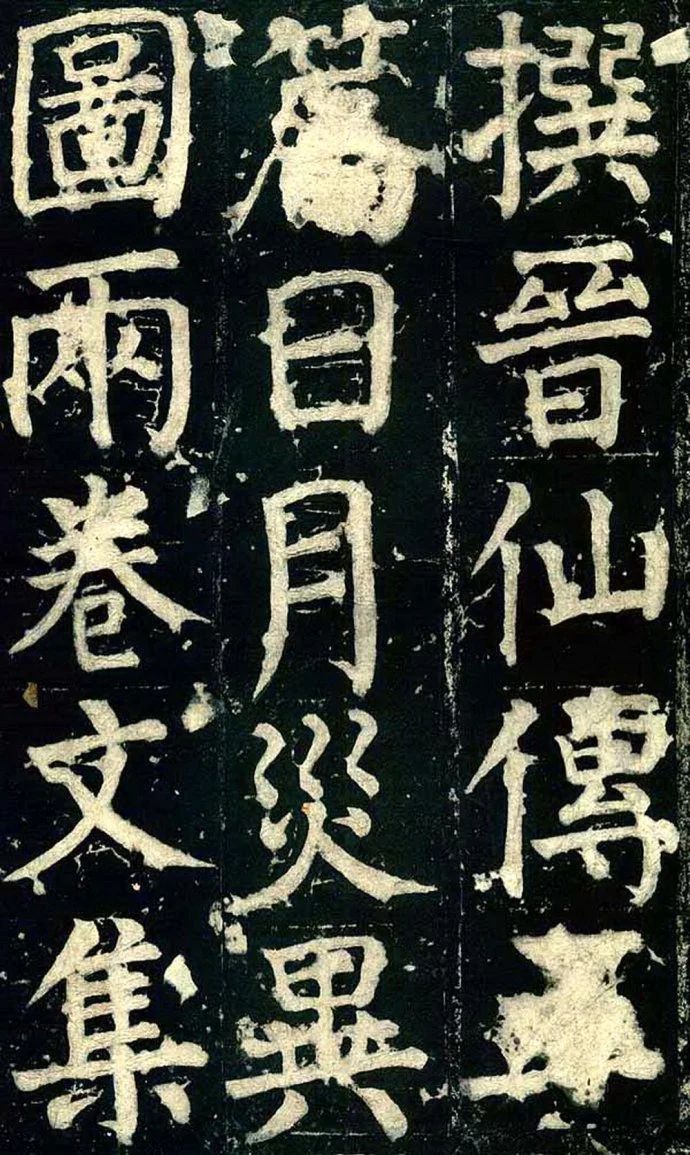 撰晉仙傳五
篇日月災異
圖兩卷文集